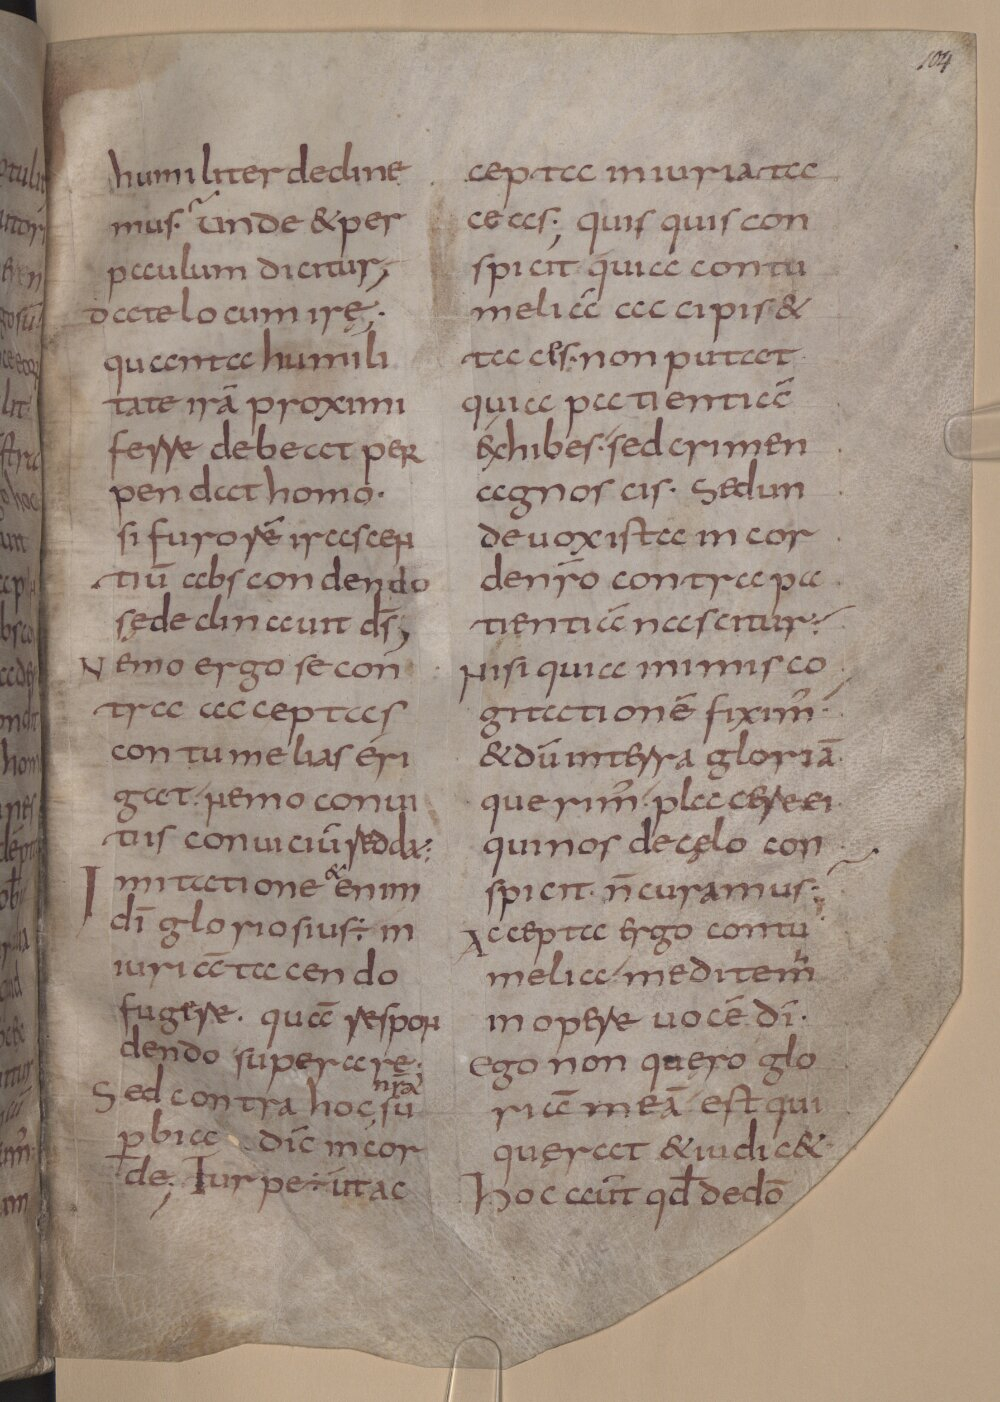 104
humiliter decline
mus. unde & per
paulum dicitur;
date locum irę;
quantа humili
tate irā proximi
ferre debeat per
pendat homo.
si furorē irascen
tiū abscondendo
se declinauit ds̄;
Nemo ergo se con
tra acceptas
contumelias eri
gat. nemo conui
tiis conuiciū reddat;
Imitatione & enim
dī gloriosius÷ in
iuriā tacendo
fugere. quā respon
dendo superare;
Sed contra hoc su nr̄a
ꝑbia dic̄ in cor
de; Turpe÷ ut ac
cepta iniuria tac
ceas; quisquis con
spicit quia contu
meliā accipis &
taces. non putat
quia patientiā
exhibes. sed crimen
agnoscis. Sed un
de uox ista in cor
de nr̄o contra pa
tientiā nascitur.
nisi quia in imis co
gitationē fixim̄.
& dū in terra gloriā
querim̄. placere ei
qui nos de cęlo con
spicit. n̄ curamus;
Accepta ergo contu
melia meditem̄
in opere uocē dī.
ego non quęro glo
riā meā est qui
quęrat & iudic&
Hoc aūt qd̄ de dō